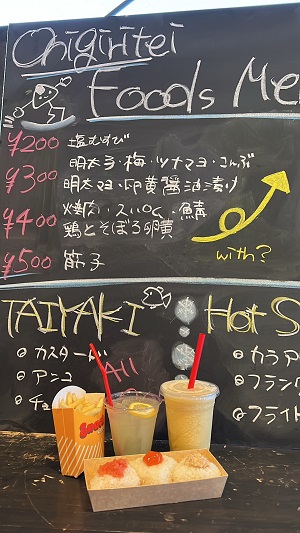 Onigiritei
Foods Me
¥200 塩むすび
明太子・梅・ツナマヨ・こんぶ
¥300 明太マヨ・卵黄醤油漬け
¥400 焼肉・スパム・鯖
鶏とそぼろ卵黄
¥500 筋子
with?
TAIYAKI
Hot S
カスタード
アンコ
チョ
All
カラア
フランク
フライド